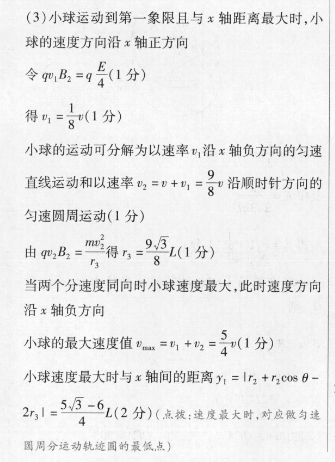 (3)小球运动到第一象限且与 x 轴距离最大时,小
球的速度方向沿 x 轴正方向
令 qv₁B₂ = q E/4 (1 分)
得 v₁ = 1/8 v(1 分)
小球的运动可分解为以速率 v₁沿 x 轴负方向的匀速
直线运动和以速率 v₂ = v + v₁ = 9/8 v 沿顺时针方向的
匀速圆周运动(1 分)
由 qv₂B₂ = mv₂²/r₃ 得 r₃ = 9√3/8 L(1 分)
当两个分速度同向时小球速度最大,此时速度方向
沿 x 轴负方向
小球的最大速度值 vₘₐₓ = v₁ + v₂ = 5/4 v(1 分)
小球速度最大时与 x 轴间的距离 y₁ = |r₂ + r₂cos θ −
2r₃| = (5√3 − 6)/4 L(2 分)(点拨:速度最大时,对应做匀速
圆周分运动轨迹圆的最低点)